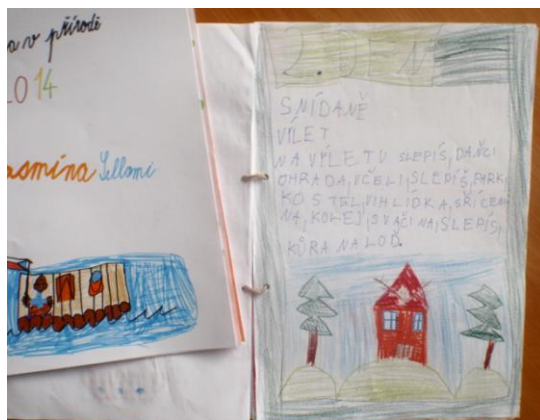 a v přírodě
2014
asmína Sellami
2. DEN
SNÍDANĚ
VÍLET
NA VÝLETU SLEPÍŠ, DANČI
OHRADA, VČELI, SLEPÍŠ, PARK,
KOSTEL, VIHLÍDKA, SŘÍCENI
NA, KOLEJ, SVAČINA, SLEPÍŠ,
KŮRA NA LOĎ.